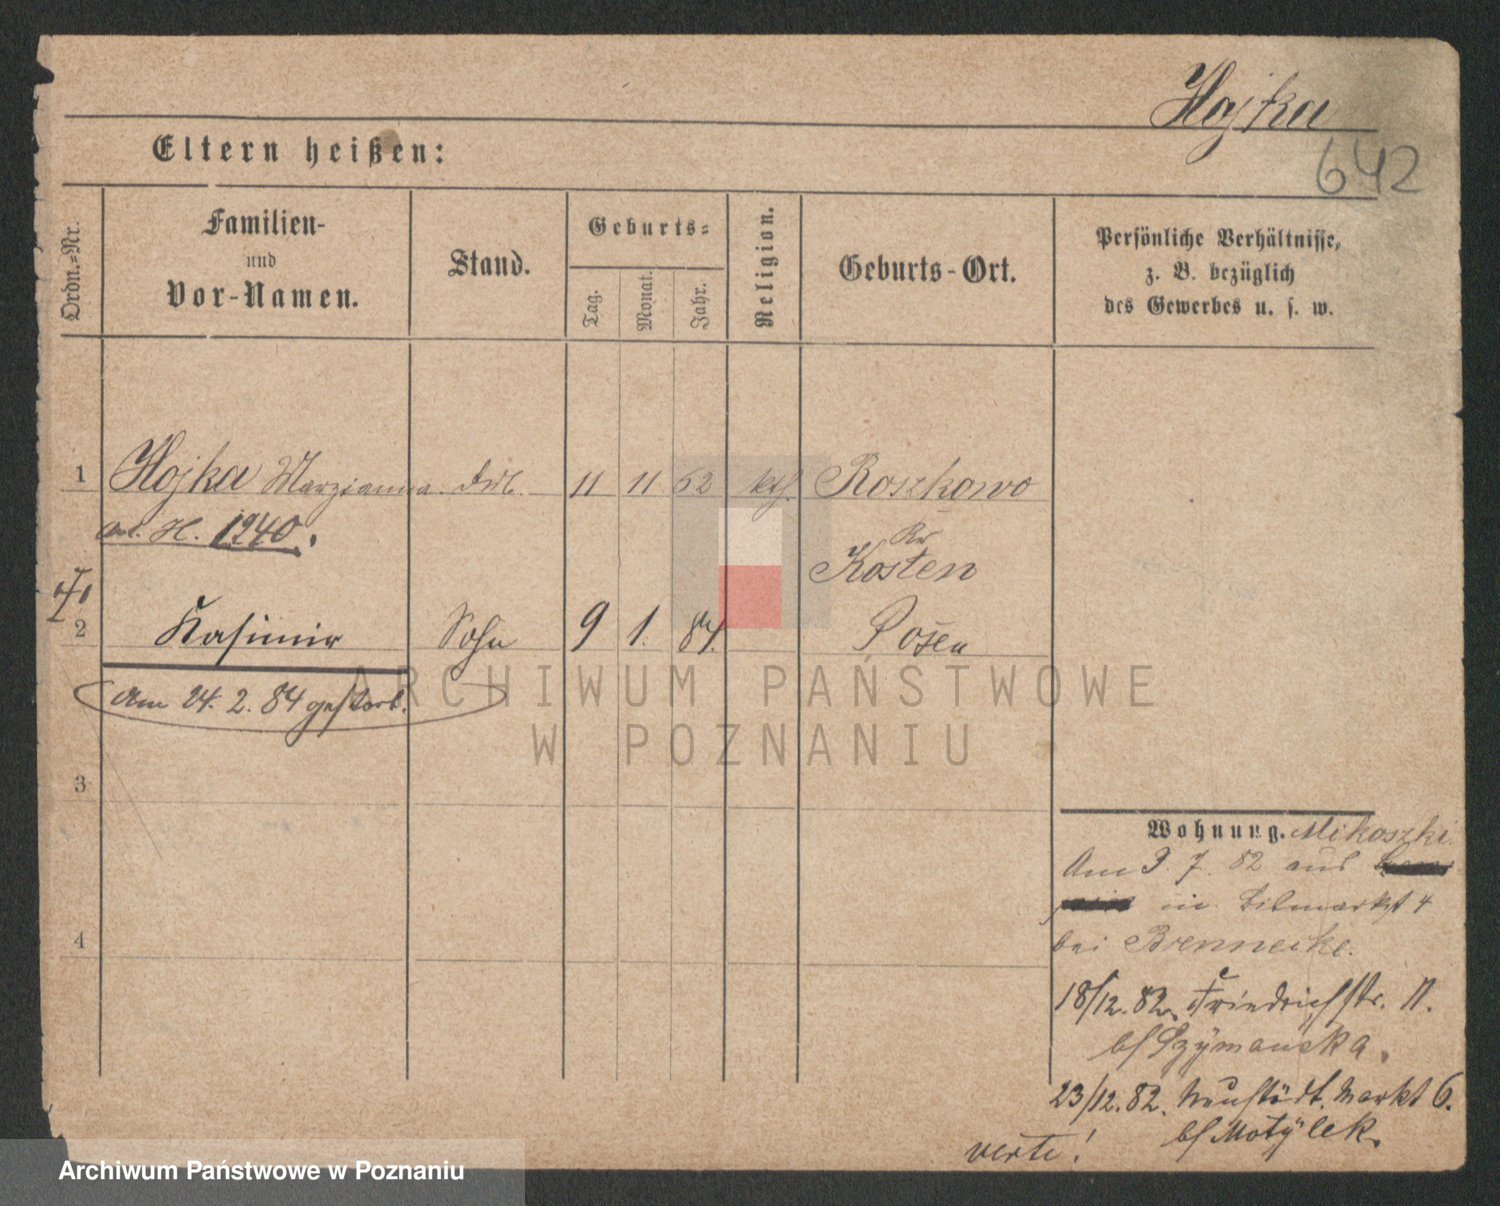 Hojka
642
Eltern heißen:
Ordn.=Nr.
Familien-
und
Vor-Namen.
Stand.
Geburts=
Tag.
Monat.
Jahr.
Religion.
Geburts-Ort.
Persönliche Verhältnisse,
z. B. bezüglich
des Gewerbes u. s. w.
1 Hojka Marzianna 11 11 62 kth. Roszkowo
H. 1240. Kr
Kosten
2 Kasimir Sohn 9 1. 84. Posen
Am 24. 2. 84 gestorb.
3
4
Wohnung. Mikoszki
Am 3. 7. 82 aus
in 4
bei Brennecke.
18/12. 82. Friedrichstr. 11.
b/ Szymanska.
23/12. 82. Neustädt. Markt 6.
b/ Motylek.
verte!
ARCHIWUM PAŃSTWOWE
W POZNANIU
Archiwum Państwowe w Poznaniu